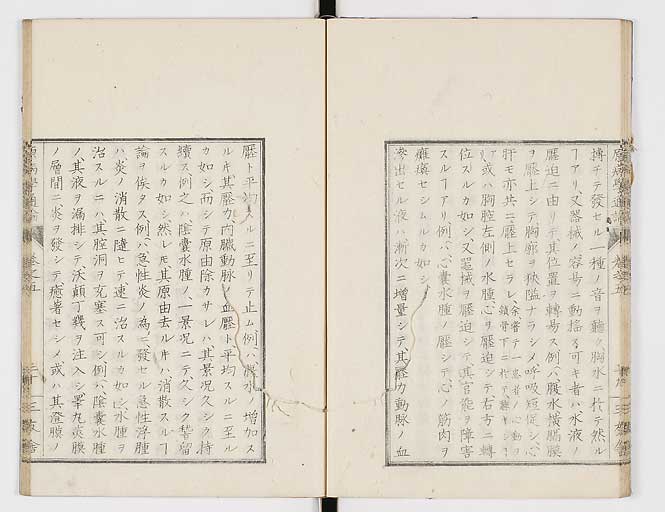 搏チテ發セル一種ノ音ヲ聽ク胸水ニ於テ然ル
フアリ又器械ノ容易ニ動搖ス可キ者ハ水液ノ
壓迫ニ由リテ其位置ヲ轉易ス例ハ腹水橫膈膜
ヲ壓上シテ胸廓ヲ狹隘ナラシメ呼吸短促シ心
肝モ亦共ニ壓上セラレ
或ハ胸腔左側ノ水腫心ヲ壓迫シテ右方ニ轉
位スルカ如シ又器械ヲ壓迫シテ其官能ヲ障害
スルフアリ例ハ心囊水腫ノ壓シテ心ノ筋肉ヲ
痲痺セシムルカ如シ
滲出セル液ハ漸次ニ增量シテ其壓力動脈ノ血
壓ト平均スルニ至リテ止ム例ハ水ノ增加ス
ル其壓力內臟動脈ノ血壓ト平均スルニ至ル
カ如シ而シテ原由除カサレハ其景况久シク持
續ス例之ハ陰囊水腫ノ一景况ニテ久シク稽留
スルカ如シ然レ其原由去ルハ消散スルフ
論ヲ俟タス例ハ急性炎ノ為ニ發セル急性浮腫
ハ炎ノ消散ニ隨ヒテ速ニ治スルカ如シ水腫ヲ
治スルニハ其腔洞ヲ充塞ス可シ例ハ陰囊水腫
ノ其液ヲ漏排シテ沃顛丁幾ヲ注入シ睪丸莢膜
ノ層間ニ炎ヲ發シテ癒著セシメ或ハ其澄膜ノ
原病學通論
卷之五
三十
三友舍